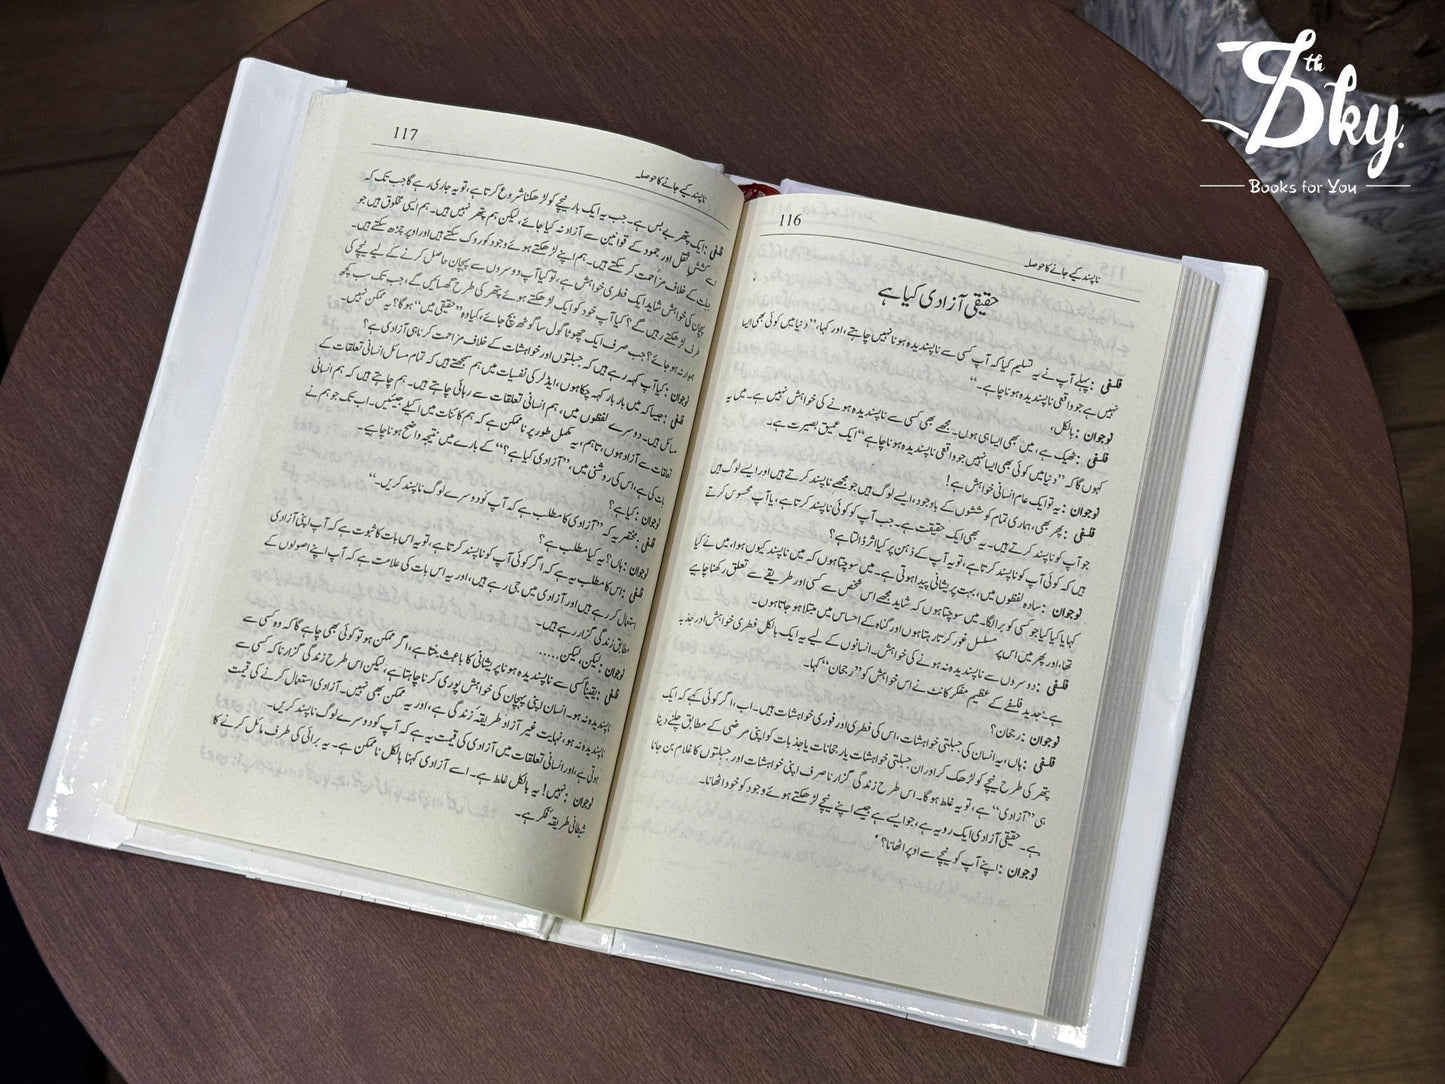 116
ناپسند کیے جانے کا حوصلہ
حقیقی آزادی کیا ہے
فلسفی : پہلے آپ نے یہ تسلیم کیا کہ آپ کسی سے ناپسندیدہ ہونا نہیں چاہتے، اور کہا، ”دنیا میں کوئی بھی ایسا
نہیں ہے جو واقعی ناپسندیدہ ہونا چاہے۔“
نوجوان : بالکل،
فلسفی : ٹھیک ہے، میں بھی ایسا ہی ہوں۔ مجھے بھی کسی سے ناپسندیدہ ہونے کی خواہش نہیں ہے۔ میں یہ
کہوں گا کہ ”دنیا میں کوئی بھی ایسا نہیں جو واقعی ناپسندیدہ ہونا چاہے“ ایک عمیق بصیرت ہے۔
نوجوان : یہ تو ایک عام انسانی خواہش ہے!
فلسفی : پھر بھی، ہماری تمام کوششوں کے باوجود، ایسے لوگ ہیں جو مجھے ناپسند کرتے ہیں اور ایسے لوگ ہیں
جو آپ کو ناپسند کرتے ہیں۔ یہ بھی ایک حقیقت ہے۔ جب آپ کو کوئی ناپسند کرتا ہے، یا آپ محسوس کرتے
ہیں کہ کوئی آپ کو ناپسند کرتا ہے، تو یہ آپ کے ذہن پر کیا اثر ڈالتا ہے؟
نوجوان : سادہ لفظوں میں، بہت پریشانی پیدا ہوتی ہے۔ میں سوچتا ہوں کہ میں ناپسند کیوں ہوا، میں نے کیا
کہا یا کیا کیا جو کسی کو برا لگا۔ میں سوچتا ہوں کہ شاید مجھے اس شخص سے کسی اور طریقے سے تعلق رکھنا چاہیے
تھا، اور پھر میں اس پر مسلسل غور کرتا رہتا ہوں اور گناہ کے احساس میں مبتلا ہو جاتا ہوں۔
فلسفی : دوسروں سے ناپسندیدہ نہ ہونے کی خواہش۔ انسانوں کے لیے یہ ایک بالکل فطری خواہش اور جذبہ
ہے۔ جدید فلسفے کے عظیم مفکر کانٹ نے اس خواہش کو ”رجحان“ کہا۔
نوجوان : رجحان؟
فلسفی : ہاں، یہ انسان کی جبلتی خواہشات، اس کی فطری اور فوری خواہشات ہیں۔ اب، اگر کوئی کہے کہ ایک
پتھر کی طرح نیچے کو لڑھک کر اور ان جبلتی خواہشات یا رجحانات یا جذبات کو اپنی مرضی کے مطابق چلنے دینا
ہی ”آزادی“ ہے، تو یہ غلط ہوگا۔ اس طرح زندگی گزارنا صرف اپنی خواہشات اور جبلتوں کا غلام بن جانا
ہے۔ حقیقی آزادی ایک رویہ ہے، جو ایسے ہے جیسے اپنے نیچے لڑھکتے ہوئے وجود کو خود اٹھانا۔
نوجوان : اپنے آپ کو نیچے سے اوپر اٹھانا؟
117
ناپسند کیے جانے کا حوصلہ
فلسفی : ایک پتھر بے بس ہے۔ جب یہ ایک بار نیچے کو لڑھکنا شروع کرتا ہے، تو یہ جاری رہے گا جب تک کہ
اسے کشش ثقل اور جمود کے قوانین سے آزاد نہ کیا جائے، لیکن ہم پتھر نہیں ہیں۔ ہم ایسی مخلوق ہیں جو
جبلت کے خلاف مزاحمت کر سکتے ہیں۔ ہم اپنے لڑھکتے ہوئے وجود کو روک سکتے ہیں اور اوپر چڑھ سکتے ہیں۔
پہچان کی خواہش شاید ایک فطری خواہش ہے، تو کیا آپ دوسروں سے پہچان حاصل کرنے کے لیے نیچے کی
طرف لڑھکتے رہیں گے؟ کیا آپ خود کو ایک لڑھکتے ہوئے پتھر کی طرح گھسائیں گے، جب تک سب کچھ
ہموار نہ ہو جائے؟ جب صرف ایک چھوٹا گول سا گوٹھ بچ جائے، کیا وہ ”حقیقی میں“ ہوگا؟ یہ ممکن نہیں۔
نوجوان : کیا آپ کہہ رہے ہیں کہ جبلتوں اور خواہشات کے خلاف مزاحمت کرنا ہی آزادی ہے؟
فلسفی : جیسا کہ میں بار بار کہہ چکا ہوں، ایڈلر کی نفسیات میں ہم سمجھتے ہیں کہ تمام مسائل انسانی تعلقات کے
مسائل ہیں۔ دوسرے لفظوں میں، ہم انسانی تعلقات سے رہائی چاہتے ہیں۔ ہم چاہتے ہیں کہ ہم انسانی
تعلقات سے آزاد ہوں، تاہم، یہ مکمل طور پر ناممکن ہے کہ ہم کائنات میں اکیلے جئیں۔ اب تک جو ہم نے
بات کی ہے، اس کی روشنی میں، ”آزادی کیا ہے؟“ کے بارے میں نتیجہ واضح ہونا چاہیے۔
نوجوان : کیا ہے؟
فلسفی : مختصر یہ کہ ”آزادی کا مطلب ہے کہ آپ کو دوسرے لوگ ناپسند کریں۔“
نوجوان : ہاں؟ یہ کیا مطلب ہے؟
فلسفی : اس کا مطلب یہ ہے کہ اگر کوئی آپ کو ناپسند کرتا ہے، تو یہ اس بات کا ثبوت ہے کہ آپ اپنی آزادی
استعمال کر رہے ہیں اور آزادی میں جی رہے ہیں، اور یہ اس بات کی علامت ہے کہ آپ اپنے اصولوں کے
مطابق زندگی گزار رہے ہیں۔
نوجوان : لیکن، لیکن .....
فلسفی : یقیناً کسی سے ناپسندیدہ ہونا پریشانی کا باعث بنتا ہے، اگر ممکن ہو تو کوئی بھی چاہے گا کہ وہ کسی سے
ناپسندیدہ نہ ہو۔ انسان اپنی پہچان کی خواہش پوری کرنا چاہتا ہے، لیکن اس طرح زندگی گزارنا کہ کسی سے
ناپسندیدہ نہ ہو، نہایت غیر آزاد طریقۂ زندگی ہے، اور یہ ممکن بھی نہیں۔ آزادی استعمال کرنے کی قیمت
ہوتی ہے، اور انسانی تعلقات میں آزادی کی قیمت یہ ہے کہ آپ کو دوسرے لوگ ناپسند کریں۔
نوجوان : نہیں! یہ بالکل غلط ہے۔ اسے آزادی کہنا بالکل ناممکن ہے۔ یہ برائی کی طرف مائل کرنے کا
شیطانی طریقۂ فکر ہے۔
The Sky.
Books for You